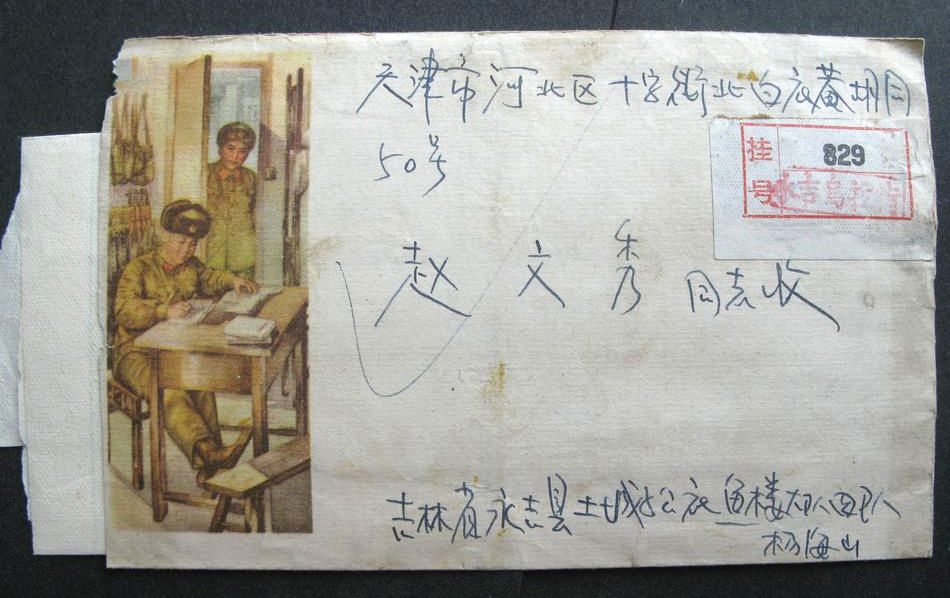 天津市河北区十字街北白衣菴胡同
50号
挂号 829
永吉乌拉街
赵文秀同志收
吉林省永吉县土城子公社鱼楼大队四队
杨海山